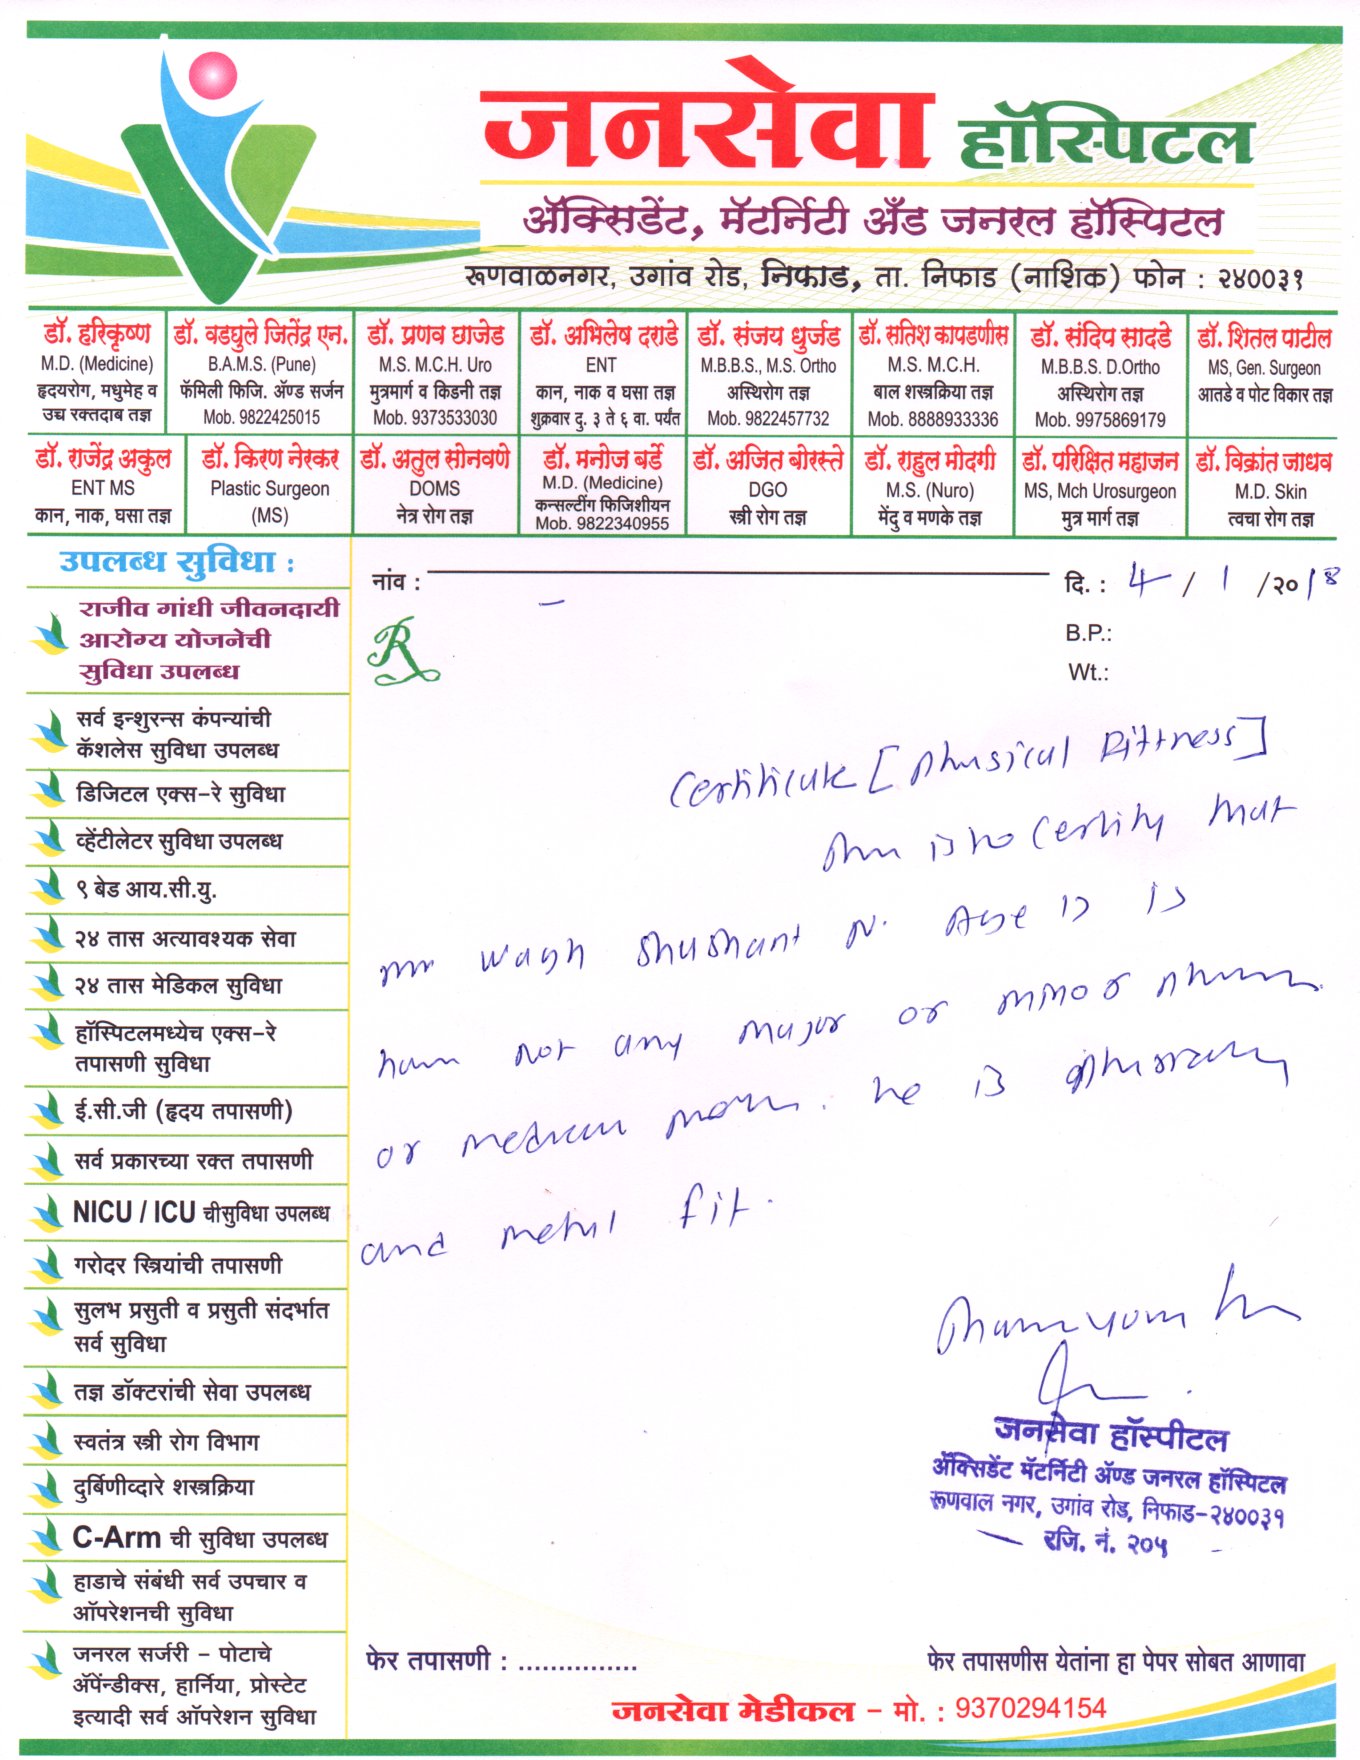 जनसेवा हॉस्पिटल
ॲक्सिडेंट, मॅटर्निटी अँड जनरल हॉस्पिटल
रूणवाळनगर, उगांव रोड, निफाड, ता. निफाड (नाशिक) फोन : २४००३१
डॉ. हरिकृष्ण
M.D. (Medicine)
हृदयरोग, मधुमेह व
उच्च रक्तदाब तज्ञ
डॉ. वडघुले जितेंद्र एन.
B.A.M.S. (Pune)
फॅमिली फिजि. ॲण्ड सर्जन
Mob. 9822425015
डॉ. प्रणव छाजेड
M.S. M.C.H. Uro
मुत्रमार्ग व किडनी तज्ञ
Mob. 9373533030
डॉ. अभिलेष दराडे
ENT
कान, नाक व घसा तज्ञ
शुक्रवार दु. ३ ते ६ वा. पर्यंत
डॉ. संजय धुर्जड
M.B.B.S., M.S. Ortho
अस्थिरोग तज्ञ
Mob. 9822457732
डॉ. सतिश कापडणीस
M.S. M.C.H.
बाल शस्त्रक्रिया तज्ञ
Mob. 8888933336
डॉ. संदिप सादडे
M.B.B.S. D.Ortho
अस्थिरोग तज्ञ
Mob. 9975869179
डॉ. शितल पाटील
MS, Gen. Surgeon
आतडे व पोट विकार तज्ञ
डॉ. राजेंद्र अकुल
ENT MS
कान, नाक, घसा तज्ञ
डॉ. किरण नेरकर
Plastic Surgeon
(MS)
डॉ. अतुल सोनवणे
DOMS
नेत्र रोग तज्ञ
डॉ. मनोज बर्डे
M.D. (Medicine)
कन्सल्टींग फिजिशीयन
Mob. 9822340955
डॉ. अजित बोरस्ते
DGO
स्त्री रोग तज्ञ
डॉ. राहुल मोदगी
M.S. (Nuro)
मेंदु व मणके तज्ञ
डॉ. परिक्षित महाजन
MS, Mch Urosurgeon
मुत्र मार्ग तज्ञ
डॉ. विक्रांत जाधव
M.D. Skin
त्वचा रोग तज्ञ
उपलब्ध सुविधा :
राजीव गांधी जीवनदायी
आरोग्य योजनेची
सुविधा उपलब्ध
सर्व इन्शुरन्स कंपन्यांची
कॅशलेस सुविधा उपलब्ध
डिजिटल एक्स-रे सुविधा
व्हेंटीलेटर सुविधा उपलब्ध
९ बेड आय.सी.यु.
२४ तास अत्यावश्यक सेवा
२४ तास मेडिकल सुविधा
हॉस्पिटलमध्येच एक्स-रे
तपासणी सुविधा
ई.सी.जी (हृदय तपासणी)
सर्व प्रकारच्या रक्त तपासणी
NICU / ICU चीसुविधा उपलब्ध
गरोदर स्त्रियांची तपासणी
सुलभ प्रसुती व प्रसुती संदर्भात
सर्व सुविधा
तज्ञ डॉक्टरांची सेवा उपलब्ध
स्वतंत्र स्त्री रोग विभाग
दुर्बिणीव्दारे शस्त्रक्रिया
C-Arm ची सुविधा उपलब्ध
हाडाचे संबंधी सर्व उपचार व
ऑपरेशनची सुविधा
जनरल सर्जरी - पोटाचे
ॲपेंन्डीक्स, हार्निया, प्रोस्टेट
इत्यादी सर्व ऑपरेशन सुविधा
नांव : दि. : 4 / 1 /२०18
B.P.:
Wt.:
Certificate [Physical Fittness]
This is to Certify that
Mr Wagh Shushant N. Age 17 is
have not any major or minor
or medical he is
and metal fit.
जनसेवा हॉस्पीटल
ॲक्सिडेंट मॅटर्निटी ॲण्ड जनरल हॉस्पिटल
रूणवाल नगर, उगांव रोड, निफाड-२४००३१
रजि. नं. २०५
फेर तपासणी : ............... फेर तपासणीस येतांना हा पेपर सोबत आणावा
जनसेवा मेडीकल - मो. : 9370294154